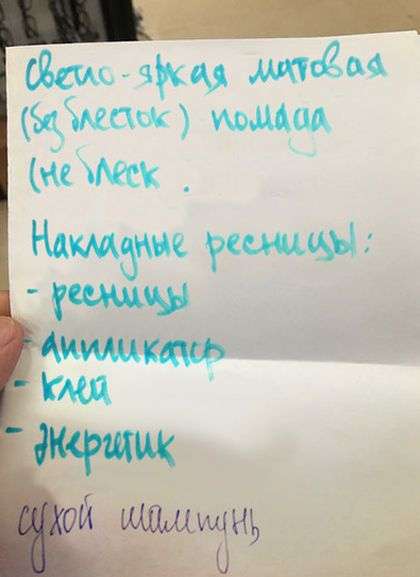 Светло-яркая матовая
(без блесток) помада
(не блеск.
Накладные ресницы:
- ресницы
- аппликатор
- клей
- энергетик
сухой шампунь